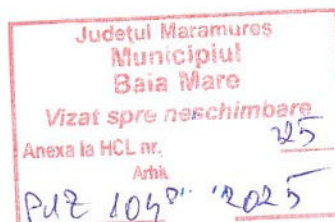 Județul Maramureș
Municipiul
Baia Mare
Vizat spre neschimbare
Anexa la HCL nr.
Arhk
PUZ 2025